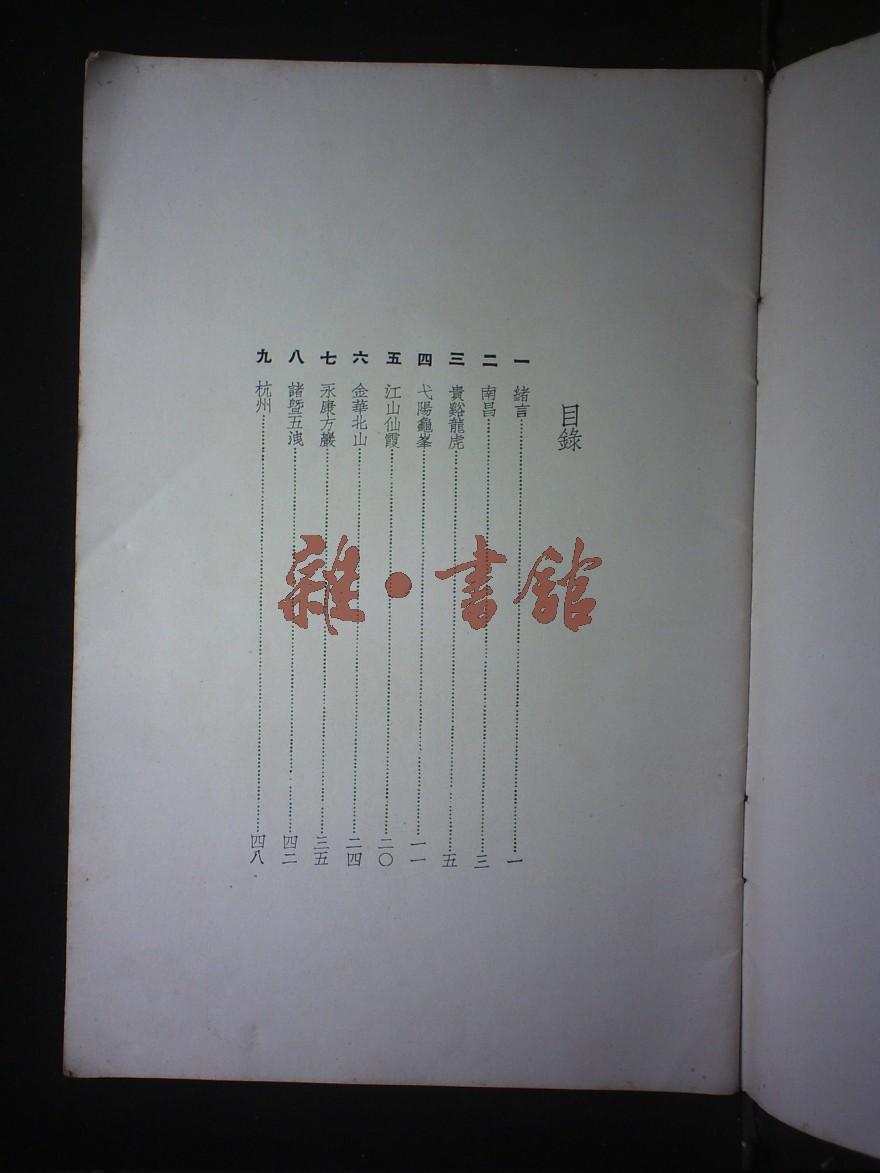 目錄
一 緒言 一
二 南昌 三
三 貴谿龍虎 五
四 弋陽龜峯 一一
五 江山仙霞 二〇
六 金華北山 二四
七 永康方巖 三五
八 諸暨五洩 四二
九 杭州 四八
雜·書館